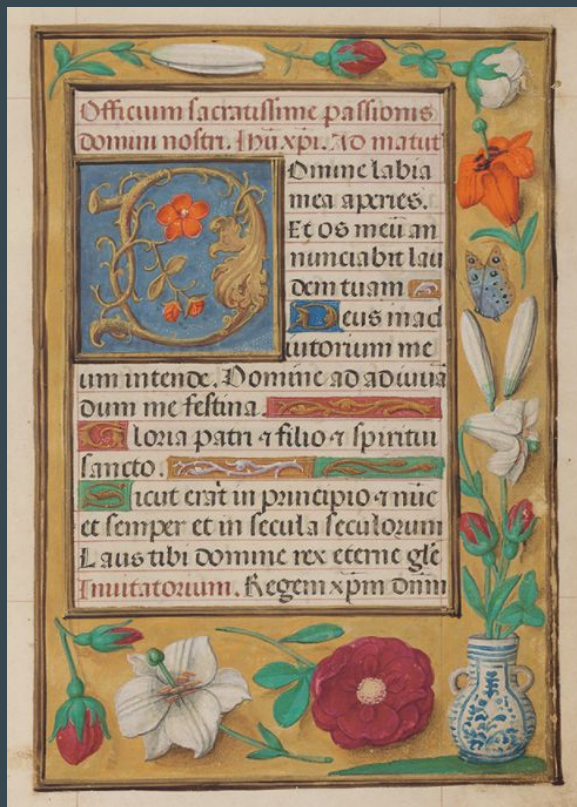 Officium sacratissime passionis
domini nostri. Ihū xp̄i. Ad matut̄
Domine labia
mea aperies.
Et os meū an
nunciabit lau
dem tuam
Deus in ad
iutorium me
um intende. Domine ad adiuuā
dum me festina.
Gloria patri ⁊ filio ⁊ spiritui
sancto.
Sicut erat in principio ⁊ nūc
et semper et in secula seculorum
Laus tibi domine rex eterne glē
Inuitatorium. Regem xp̄m dn̄m